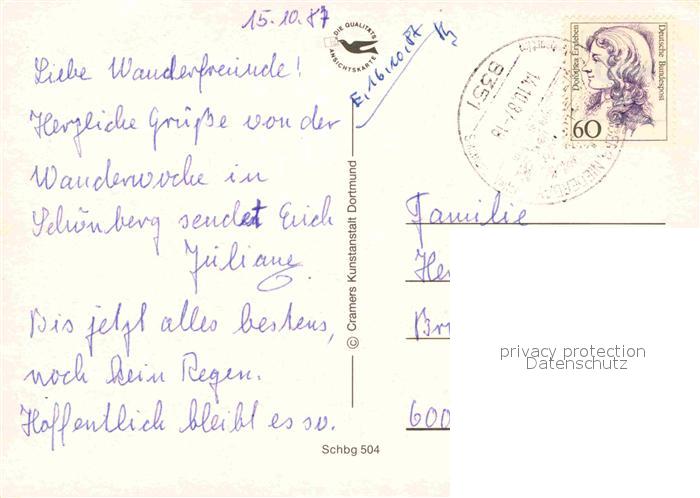 15.10.87
Liebe Wanderfreunde!
Herzliche Grüße von der
Wanderwoche in
Schönberg sendet Euch
Juliane
Bis jetzt alles bestens,
noch kein Regen.
Hoffentlich bleibt es so.
DIE QUALITÄTS
ANSICHTSKARTE
E, 16.10.87
© Cramers Kunstanstalt Dortmund
Schbg 504
8351
14.10.87-18
Dorothea Erxleben
Deutsche Bundespost
60
Familie
He
Br
600
privacy protection
Datenschutz